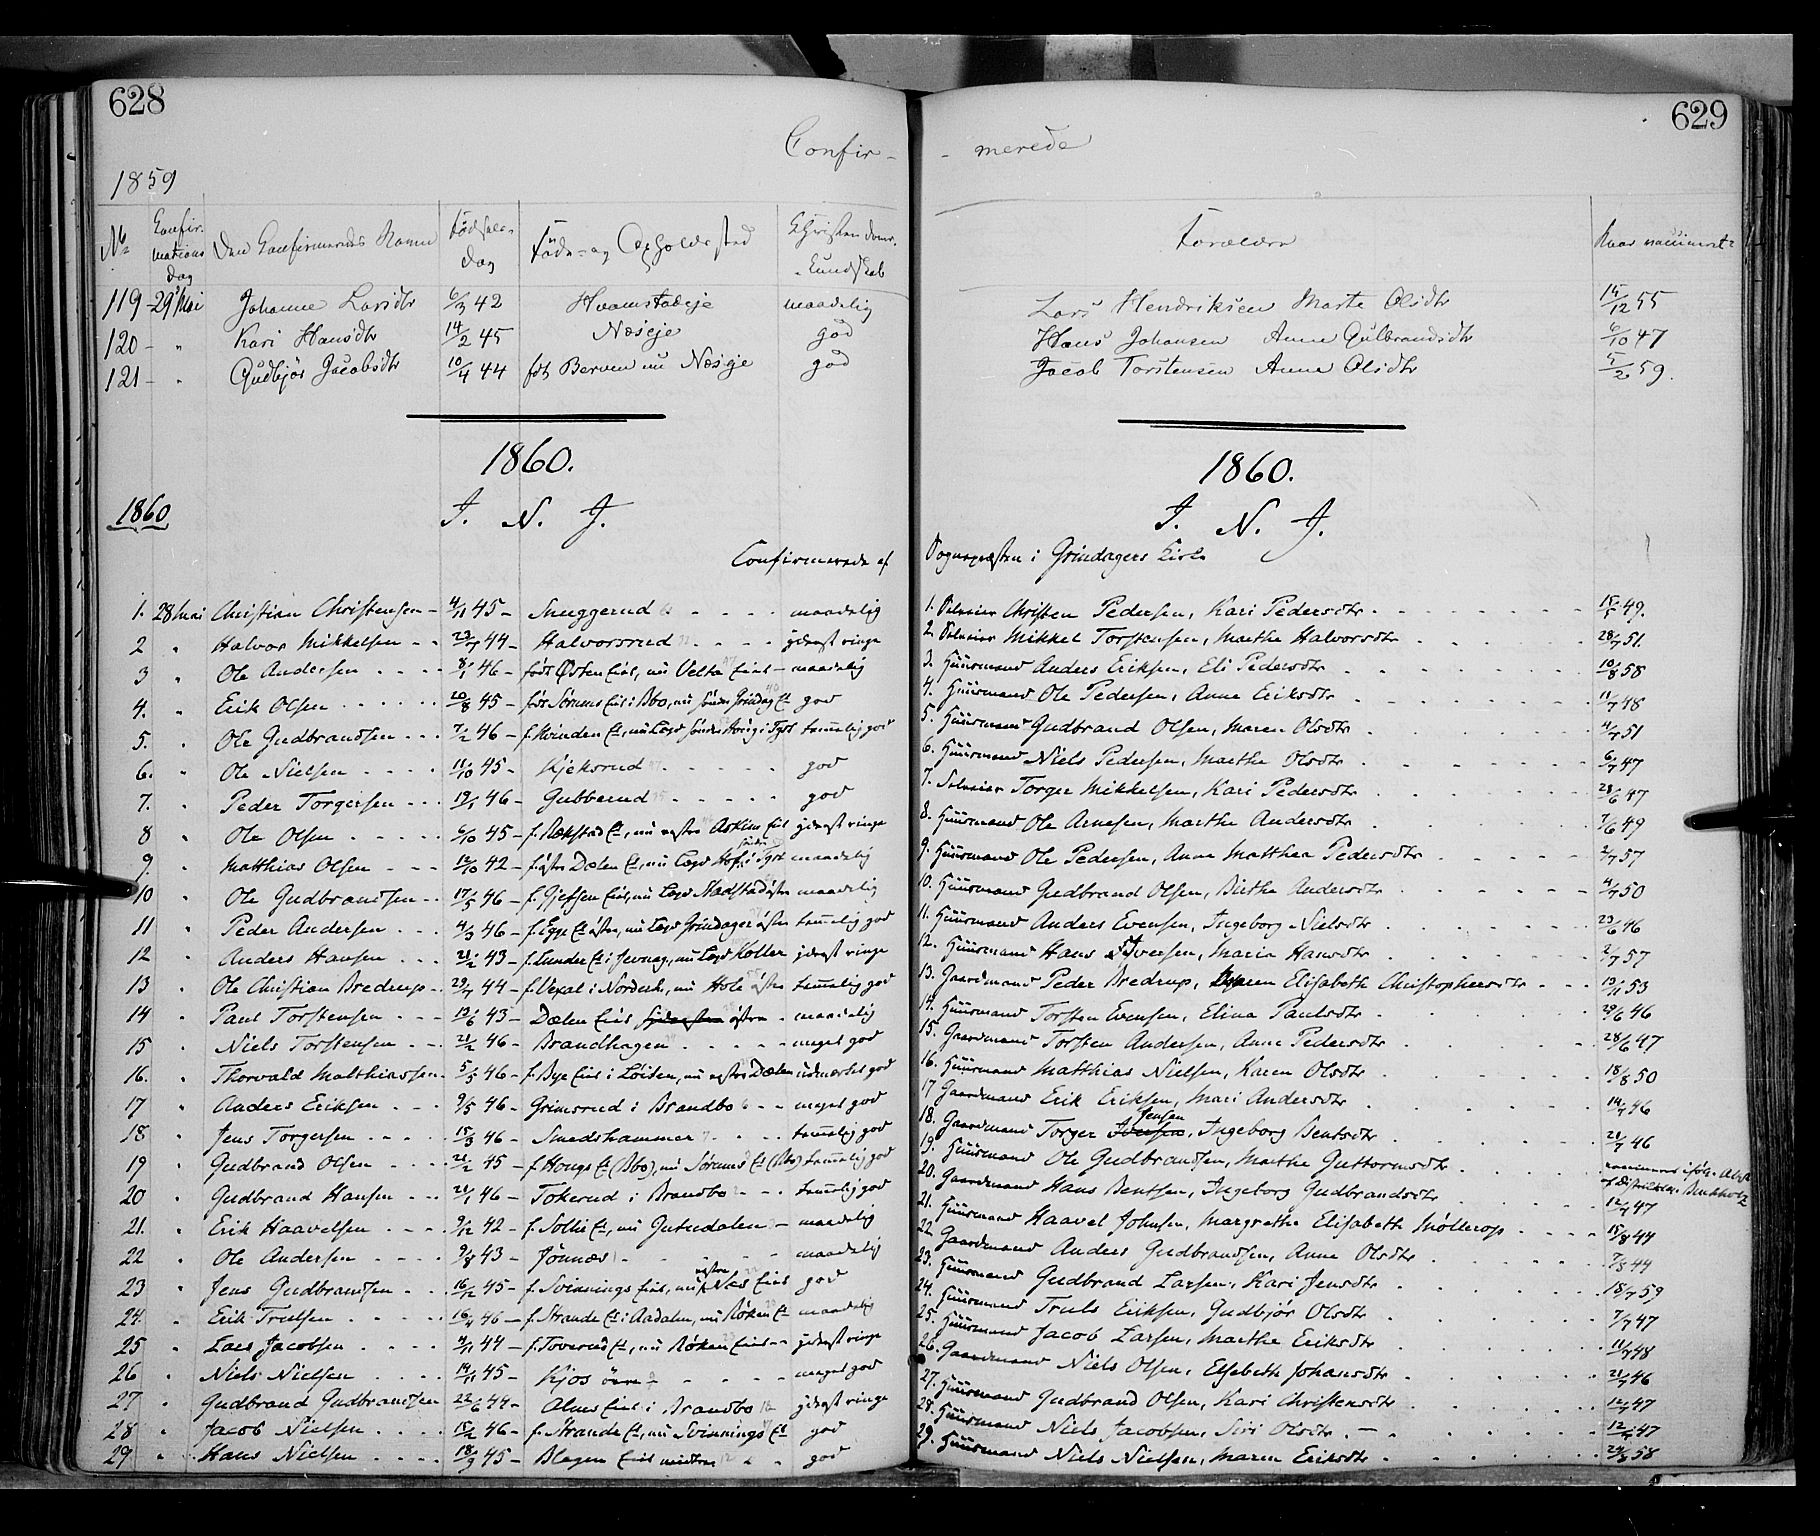 628
629
Confir-
- merede
1859
No
Confirmations Dag
Den Confirmeredes Navn
Fødsels-Dag
Føde- og Opholdssted
Christendoms-Kundskab
Forældre
Naar vaccineret
119 - 29 Mai Johanne Larsdtr 6/3 42 Hvamstadeje maadelig Lars Hendriksen Marte Olsdtr 15/12 55
120 - " Kari Hansdtr 14/2 45 Næseje god Hans Johansen Anne Gulbrandsdtr 6/10 47
121 - " Gudbjør Jacobsdtr 10/4 44 født Berven nu Næseje god Jacob Torstensen Anne Olsdtr 5/2 59.
1860.
1860.
1860
I. N. J.
I. N. J.
Confirmerede af
Sognepræsten i Grindagers Kirke
1. 28 Mai Christian Christensen - 4/11 45 - Snuggerud maadelig 1. Selveier Christen Pedersen, Kari Pedersdtr 49.
2 " Halvor Mikkelsen 44 - Halvorsrud yderst ringe 2. Selveier Mikkel Torstensen, Marthe Halvorsdtr 28/7 51.
3 " Ole Andersen 8/1 46 - født Østen Eiet, nu Velta Eiet - maadelig 3. Huusmand Anders Eriksen, Eli Pedersdtr 10/8 58
4. " Erik Olsen 20/8 45 - født Sørums Eiet i Bbo, nu Søndre Grindag Et god 4. Huusmand Ole Pedersen, Anne Eriksdtr 11/7 48
5. " Ole Gudbrandsen 7/2 46 - f. Kvinden Et, nu temmelig god 5. Huusmand Gudbrand Olsen, Maren Olsdtr 4/7 51
6. " Ole Nielsen 11/10 45 - Kjeksrud god 6. Huusmand Niels Pedersen, Marthe Olsdtr 6/7 47
7. " Peder Torgersen 46 - Gubberud god 7. Selveier Torger Mikkelsen, Kari Pedersdtr 28/6 47
8 " Ole Olsen 6/10 45 - f. Rækstad Et, nu vestre Askim Eiet yderst ringe 8. Huusmand Ole Arnesen, Marthe Andersdtr 7/6 49
9. " Matthias Olsen 12/10 42 - f. østre Dælen Et, nu Logd søndre Hof i Tgst maadelig 9. Huusmand Ole Pedersen, Anne Matthea Pedersdtr 2/7 57
10 " Ole Gudbrandsen 17/5 46 - f. Gjefsen Eiet, nu Logd østre maadelig 10. Huusmand Gudbrand Olsen, Birthe Andersdtr 4/7 50
11 " Peder Andersen 4/3 46 - f. Egge Et østre, nu Logd Grindager østre temmelig god 11. Huusmand Anders Evensen, Ingeborg Nielsdtr 23/6 46
12 " Anders Hansen 21/2 43 - f. Lunder Et i Jevnag, nu Logd Koller yderst ringe 12. Huusmand Hans Iversen, Maria Hansdtr 2/7 57
13 " Ole Christian Bredrup 44 - f. Vexal i Norderh, nu Hole østre temmelig god 13. Gaardmand Peder Bredrup, Maren Elisabeth Christophersdtr 53
14 " Paul Torstensen 43 - Dælen Eiet østre maadelig 14. Huusmand Torsten Evensen, Elina Paulsdtr 29/6 46
15 " Niels Torstensen 21/2 46 - Brandhagen meget god 15. Gaardmand Torsten Andersen, Anne Pedersdtr 28/6 47
16. " Thorvald Matthiassen 5/5 46 - f. Bye Eiet i Løiten, nu vestre Dælen udmærket god 16. Huusmand Matthias Nielsen, Karen Olsdtr 18/8 50
17 " Anders Eriksen 9/5 46 - Grimsrud i Brandbo meget god 17 Gaardmand Erik Eriksen, Mari Andersdtr 46
18 " Jens Torgersen 15/3 46 - Smedshammer temmelig god 18. Gaardmand Torger Jensen, Ingeborg Bentsdtr 46
19 " Gudbrand Olsen 21/2 45 - f. Hougs Et (Bbo), nu Sørums Et (Bbo) temmelig god 19. Huusmand Ole Gudbrandsen, Marthe Guttormsdtr vaccineret ifølge Attest af Districtslæge Buchholz
20 " Gudbrand Hansen 21/1 46 - Tokerud i Brandbo temmelig god 20. Gaardmand Hans Bentsen, Ingeborg Gudbrandsdtr 12/7 47
21. " Erik Haavelsen 9/12 42 - f. Sollie Et, nu Gutudalen - maadelig 21. Huusmand Haavel Johnsen, Margrethe Elisabeth Møllerop 15/8 44
22 " Ole Andersen 9/8 43 - Jønnæs maadelig 22 Gaardmand Anders Gudbrandsen, Anne Olsdtr 7/8 44
23 " Jens Gudbrandsen 16/12 45 - f. Svinnings Eiet, nu vestre Næs Eiet god 23. Huusmand Gudbrand Larsen, Kari Jensdtr 18/7 59
24. " Erik Trulsen 46 - f. Strande Et i Aadalen, nu Røken Et maadelig 24. Huusmand Truls Eriksen, Gudbjør Olsdtr 7/7 47
25 " Lars Jacobsen 4/11 44 - f. Toverud Et, nu Røken Eiet yderst ringe 25. Huusmand Jacob Larsen, Marthe Eriksdtr 11/7 48
26 " Niels Nielsen 14/11 45 - Kjos øvre meget god 26. Gaardmand Niels Olsen, Elsebeth Johansdtr 21/7 46
27 " Gudbrand Gudbrandsen 22/6 44 - Alms Eiet i Brandbo yderst ringe 27. Huusmand Gudbrand Olsen, Kari Christensdtr 12/7 47
28 " Jacob Nielsen 15/2 46 - f. Strande Et, nu Svinnings Et god 28. Huusmand Niels Jacobsen, Siri Olsdtr 47
29 " Hans Nielsen 18/9 45 - Blegen Eiet midtre god 29. Huusmand Niels Nielsen, Maren Eriksdtr 58